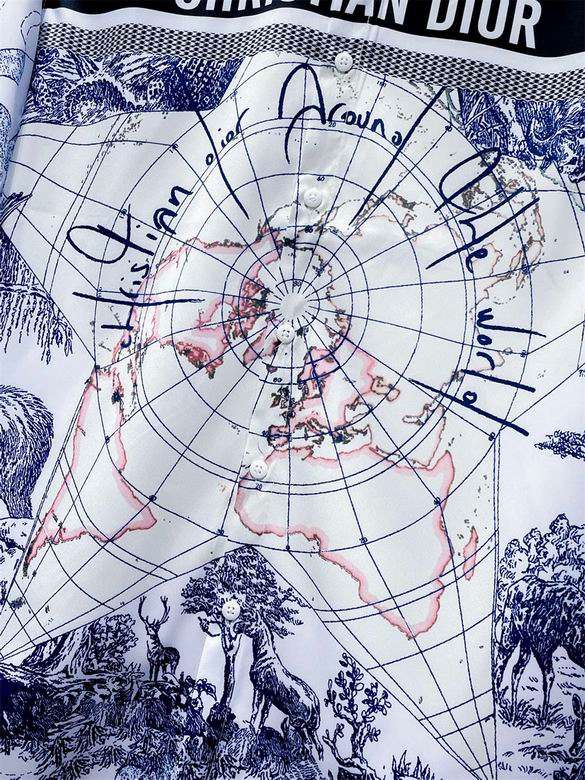 CHRISTIAN DIOR
Christian Dior Around The World